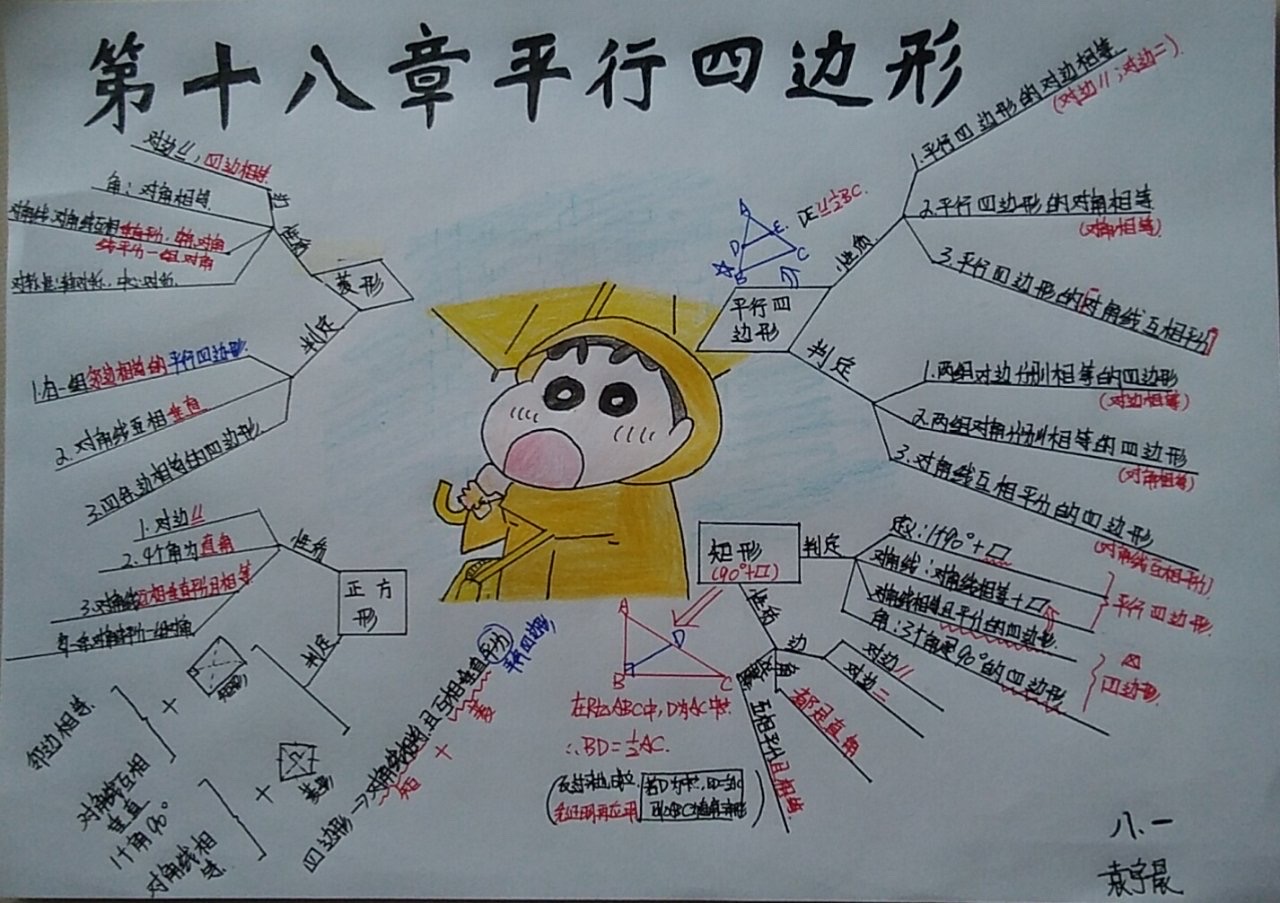 第十八章平行四边形
对边//,四边相等.
边
角:对角相等.
对角线:对角线互相垂直平分,每条对角
线平分一组对角
对称性:轴对称,中心对称.
性质
菱形
判定
1.有一组邻边相等的平行四边形.
2.对角线互相垂直
3.四条边相等的四边形
1.平行四边形的对边相等
(对边//;对边=)
2.平行四边形的对角相等
(对角相等)
3.平行四边形的对角线互相平分
性质
A
D
E
B
C
DE//=½BC.
平行四
边形
判定
1.两组对边分别相等的四边形
(对边相等)
2.两组对角分别相等的四边形
(对角相等)
3.对角线互相平分的四边形
(对角线互相平分)
1.对边//
2.4个角为直角
3.对角线互相垂直平分且相等
性质
正方
形
判定
邻边相等.
对角线互相
垂直
+
1个角90°
对角线相
等.
+
菱形
四边形→对角线相等,且互相垂直平分
平行四边形
矩+菱
矩形
(90°+▱)
判定
定义:1个90°+▱
对角线:对角线相等+▱
对角线相等且平分的四边形.
平行四边形.
角:3个角是90°的四边形
四边形.
性质
边
对边//
对边=
角
都是直角
互相平分且相等.
A
D
B
C
在Rt△ABC中,D为AC中点.
∴BD=½AC.
八.一
袁宇晨